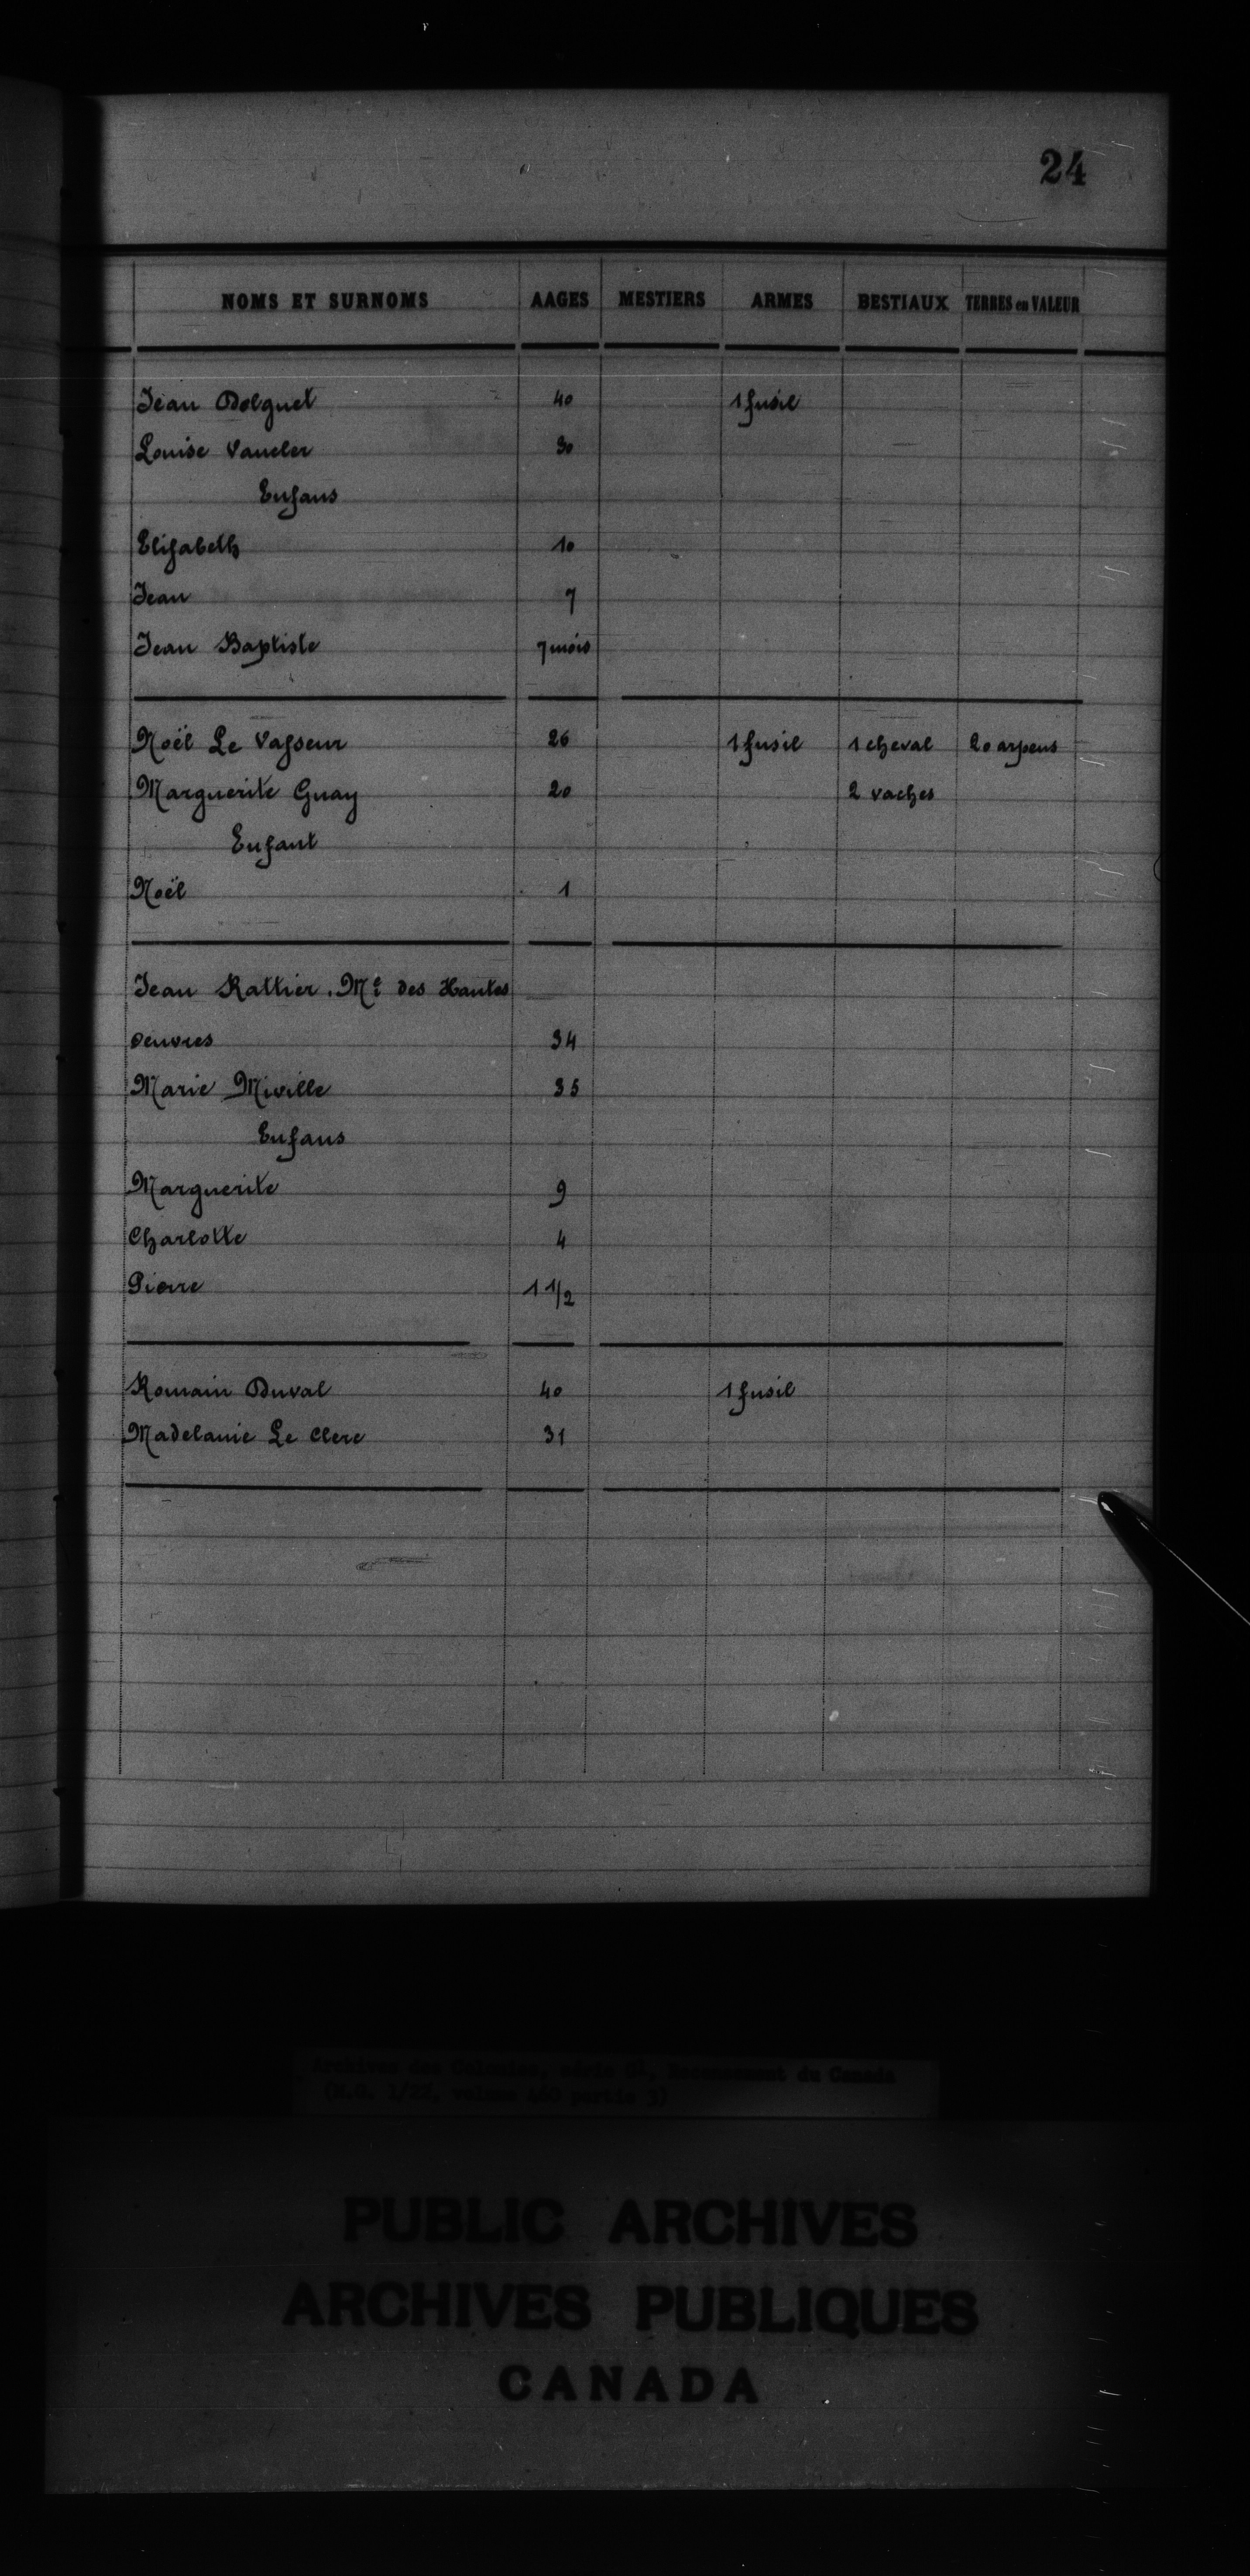 24
NOMS ET SURNOMS AAGES MESTIERS ARMES BESTIAUX TERRES en VALEUR
Jean Dolguet 40 1 fusil
Louise Vaucler 30
Enfans
Elisabeth 10
Jean 7
Jean Baptiste 7 mois
Noël Le Vasseur 26 1 fusil 1 cheval 20 arpens
Marguerite Guay 20 2 vaches
Enfant
Noël 1
Jean Rattier. Me des Hautes
oeuvres 34
Marie Miville 35
Enfans
Marguerite 9
Charlotte 4
Pierre 1 1/2
Romain Duval 40 1 fusil
Madelanie Le Clerc 31
Archives des Colonies, série G1, Recensement du Canada
(M.G. 1/22, volume 460 partie 3)
PUBLIC ARCHIVES
ARCHIVES PUBLIQUES
CANADA